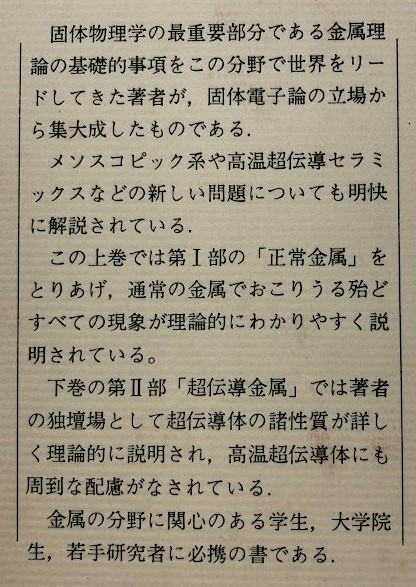 固体物理学の最重要部分である金属理
論の基礎的事項をこの分野で世界をリー
ドしてきた著者が，固体電子論の立場か
ら集大成したものである．
メソスコピック系や高温超伝導セラミ
ックスなどの新しい問題についても明快
に解説されている．
この上巻では第Ⅰ部の「正常金属」を
とりあげ，通常の金属でおこりうる殆ど
すべての現象が理論的にわかりやすく説
明されている。
下巻の第Ⅱ部「超伝導金属」では著者
の独壇場として超伝導体の諸性質が詳し
く理論的に説明され，高温超伝導体にも
周到な配慮がなされている．
金属の分野に関心のある学生，大学院
生，若手研究者に必携の書である．